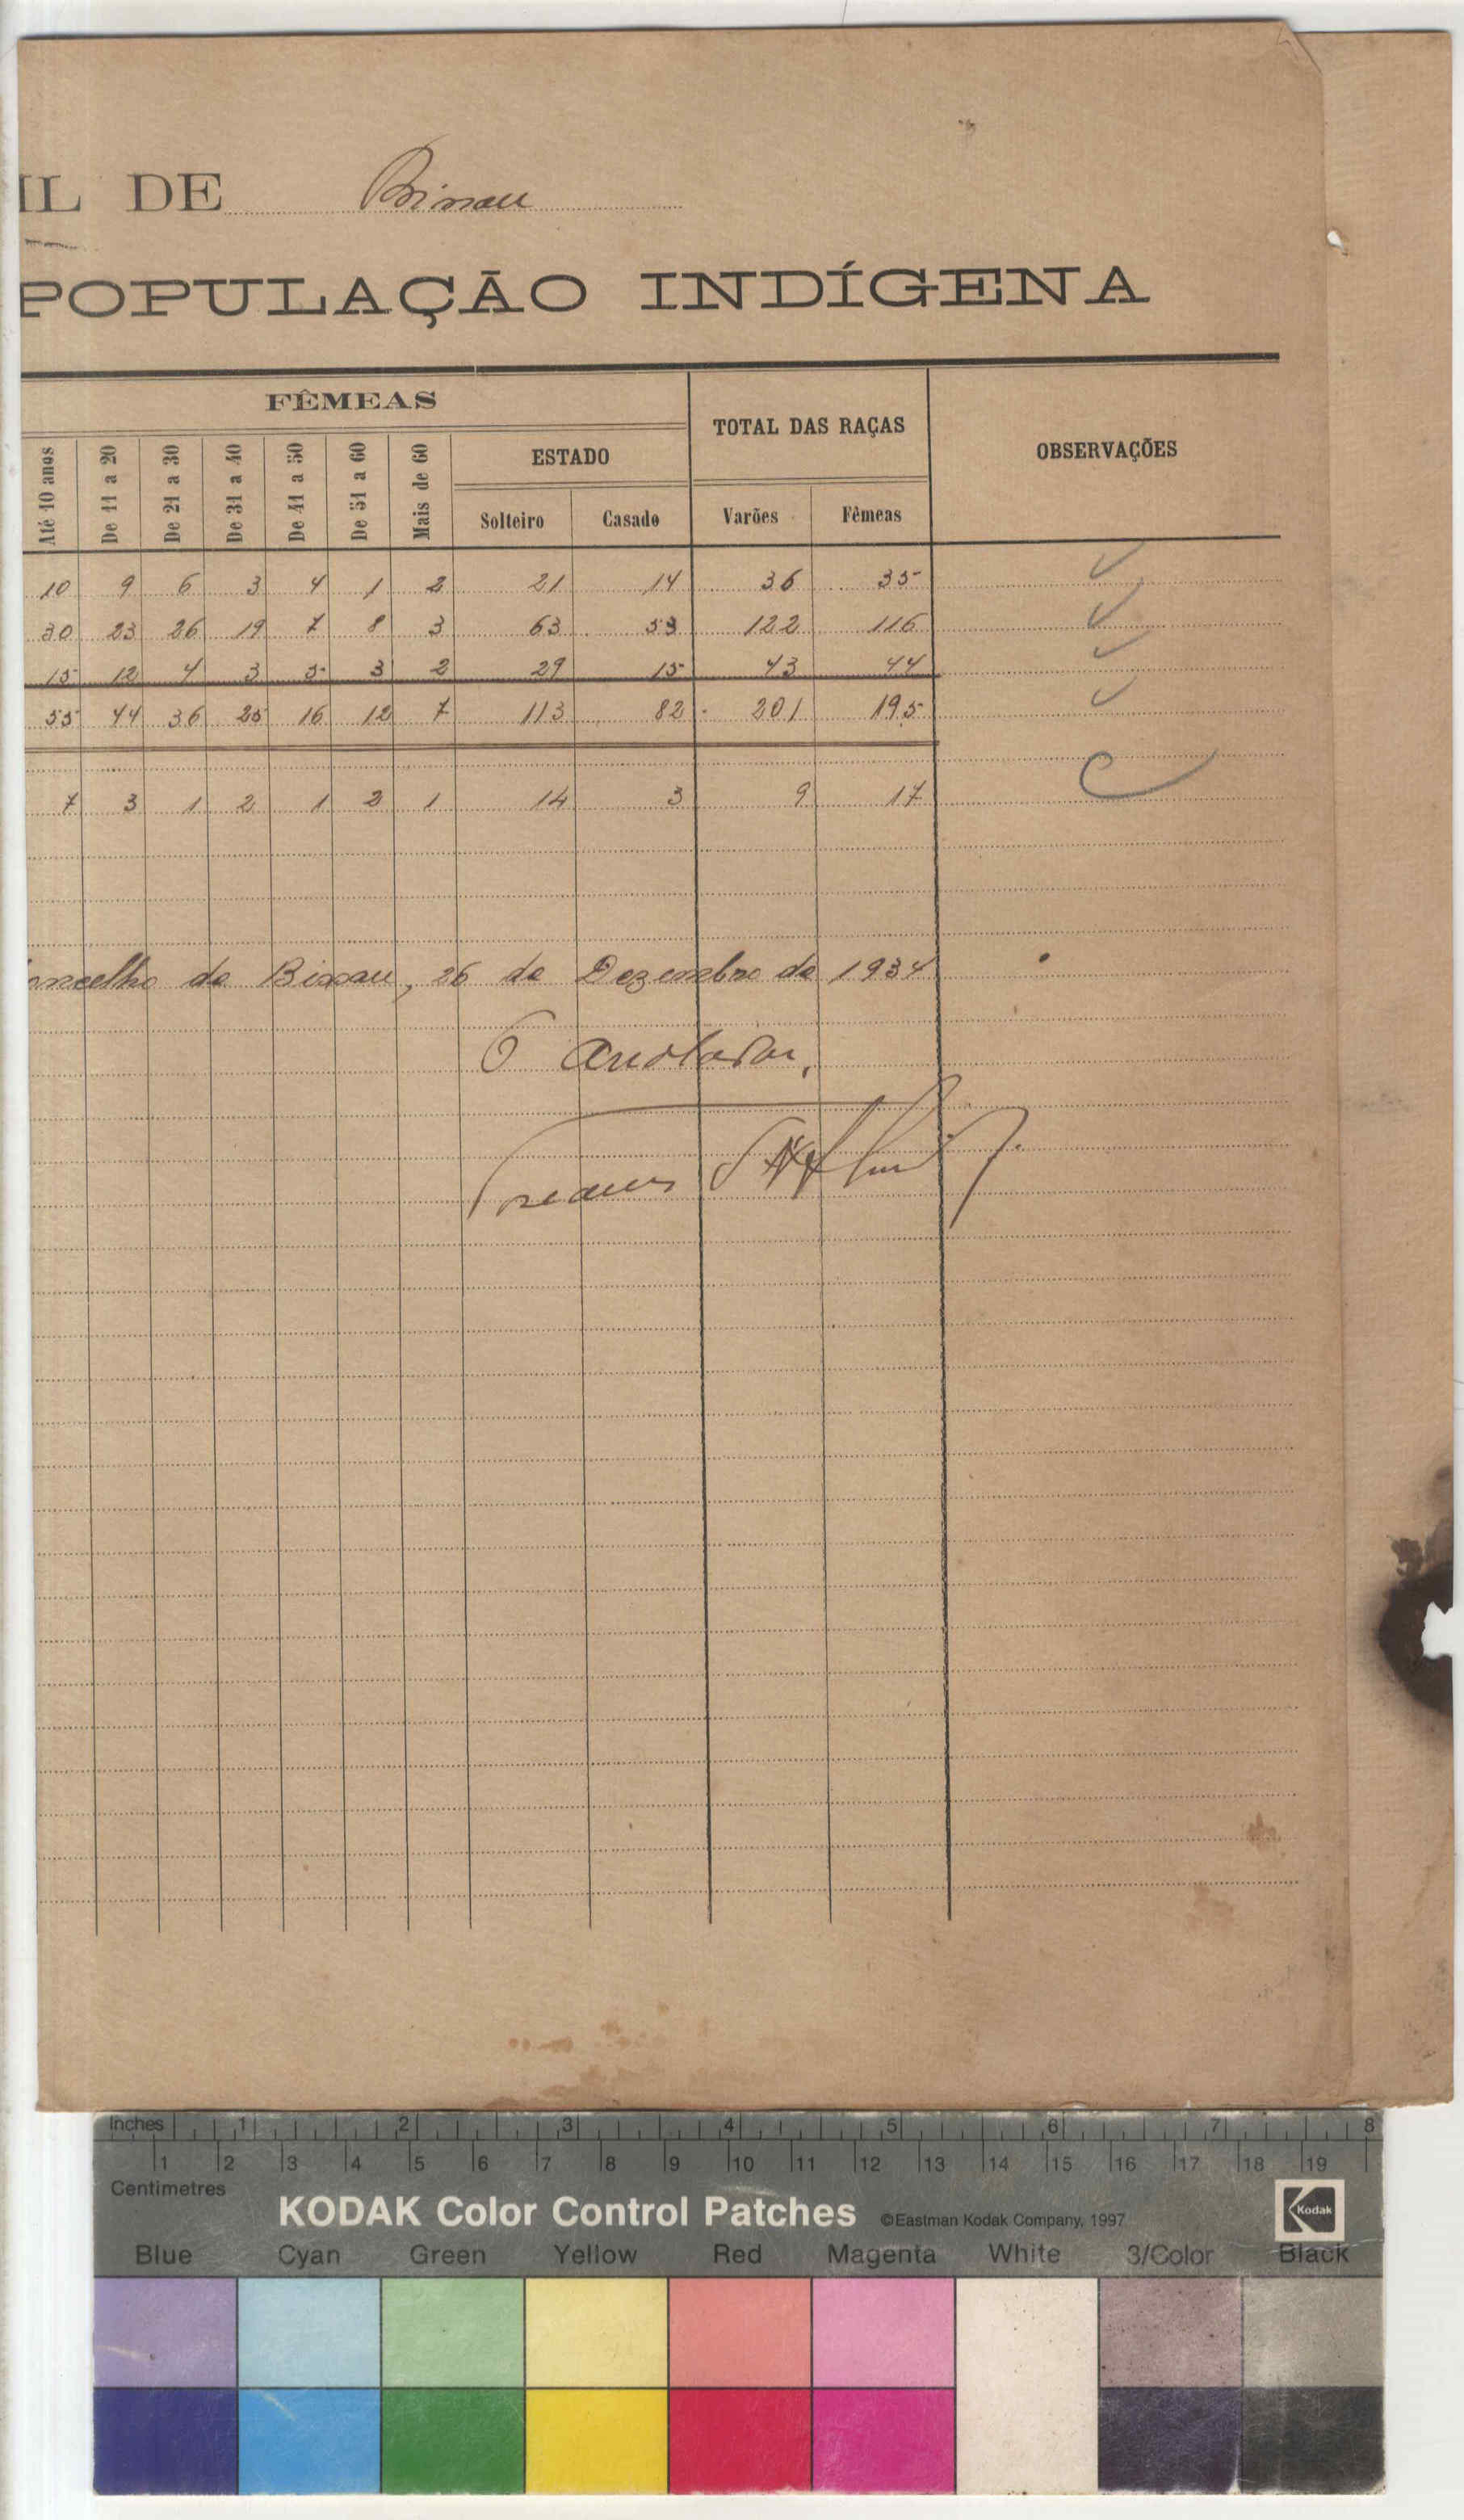 IL DE Bissau
POPULAÇÃO INDÍGENA
FÊMEAS TOTAL DAS RAÇAS OBSERVAÇÕES
Até 10 anos De 11 a 20 De 21 a 30 De 31 a 40 De 41 a 50 De 51 a 60 Mais de 60 ESTADO
Solteiro Casado Varões Fêmeas
10 9 6 3 4 1 2 21 14 36 35
30 23 26 19 7 8 3 63 53 122 116
15 12 4 3 5 3 2 29 15 43 44
55 44 36 25 16 12 7 113 82 201 195
7 3 1 2 1 2 1 14 3 9 17
oncelho de Bissau, 26 de Dezembro de 1934
O
Inches 1 2 3 4 5 6 7 8
1 2 3 4 5 6 7 8 9 10 11 12 13 14 15 16 17 18 19
Centimetres
KODAK Color Control Patches ©Eastman Kodak Company, 1997 Kodak
Blue Cyan Green Yellow Red Magenta White 3/Color Black